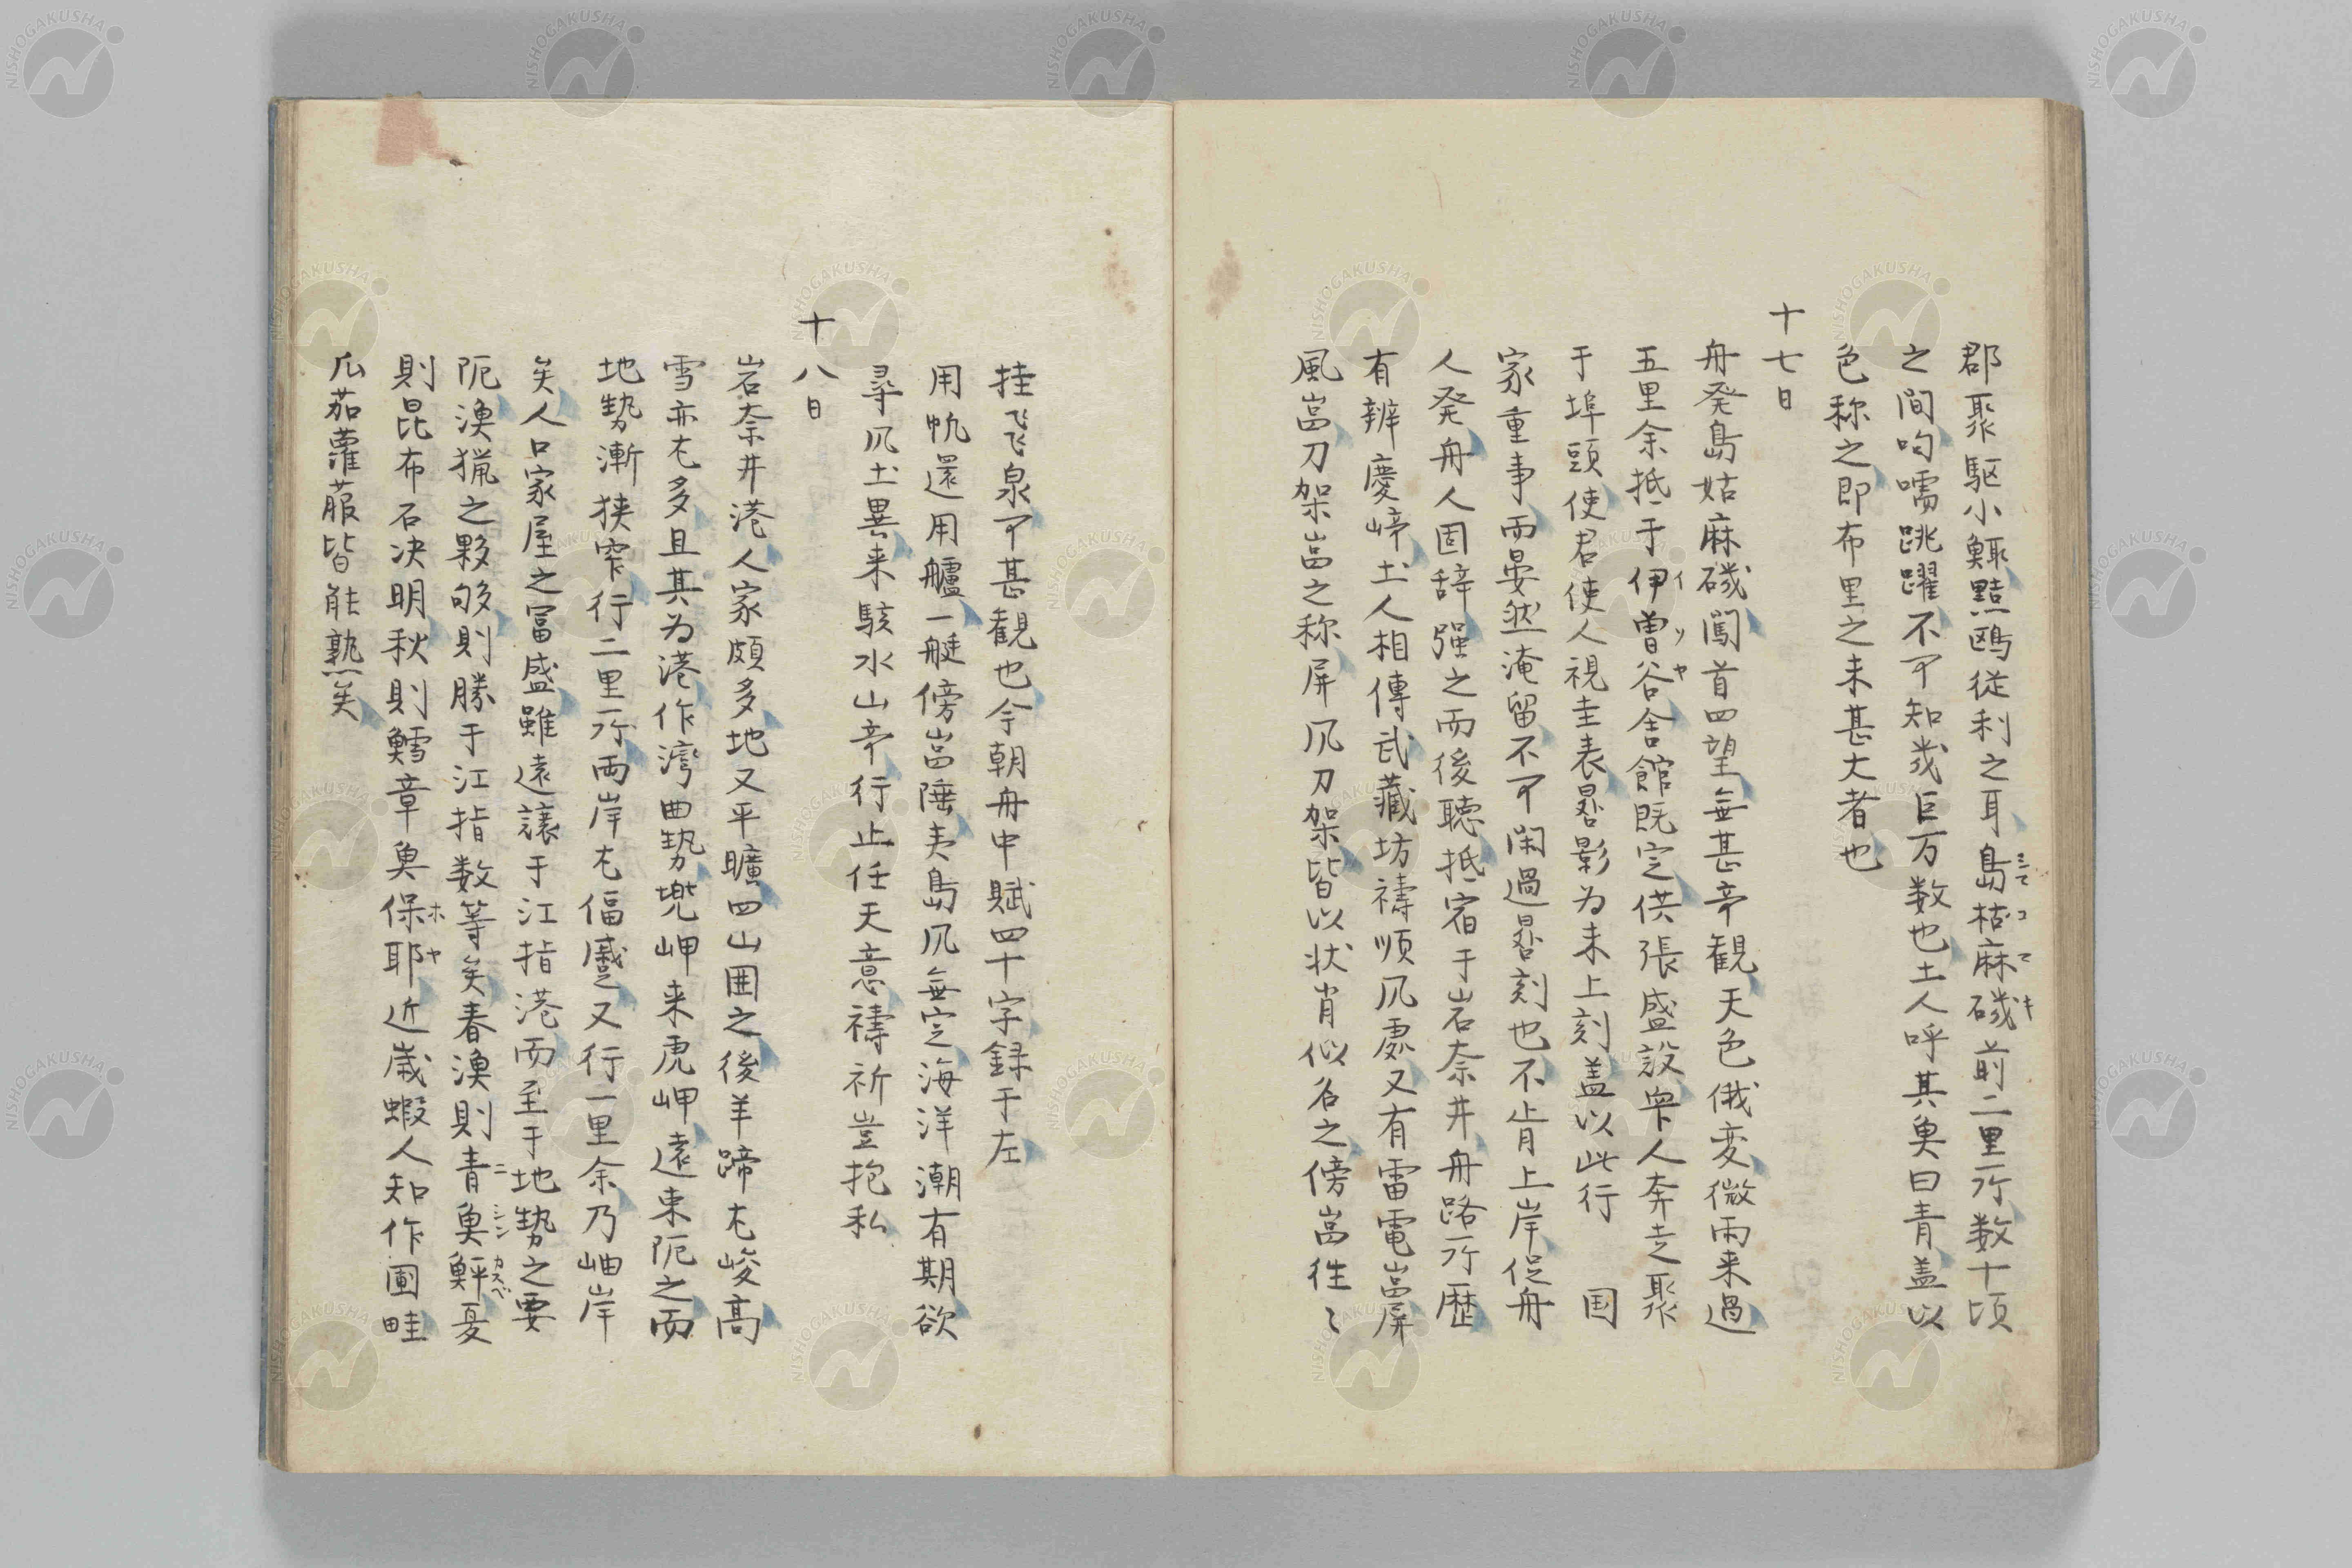 郡聚駆小鯫黠鴎従利之耳島枯麻磯前二里所数十頃
シマコマキ
之間呴嚅跳躍不可知幾巨万数也土人呼其魚曰青盖以
色称之即布里之未甚大者也
十七日
舟発島姑麻磯闖首四望無甚奇観天色俄変微雨来過
五里余抵于伊曽谷舎館既定供張盛設卑人奔走聚
イソヤ
于埠頭使君使人視圭表晷影为未上刻盖以此行 国
家重事而晏然淹留不可閑過晷刻也不肯上岸促舟
人発舟人固辞强之而後聴抵宿于岩奈井舟路所歴
有辨慶㟃土人相傳武藏坊禱順凨處又有雷電嵓屏
風嵓刀架嵓之称屏凨刀架皆以状肖似名之傍嵓徃〻
挂飞泉可甚観也今朝舟中賦四十字録于左
用帆還用艫一艇傍嵓陲夷島凨無定海洋潮有期欲
尋凨土異来駭水山奇行止任天意禱祈豈抱私
十八日
岩奈井港人家頗多地又平曠四山囲之後羊蹄尤峻高
雪亦尤多且其为港作湾曲勢兠岬来虎岬遠束阨之而
地勢漸狭窄行二里所両岸尤偪蹙又行一里余乃岫岸
矣人口家屋之冨盛雖遠譲于江指港而至于地勢之要
阨漁猟之夥够則勝于江指数等矣春漁則青魚鮃夏
ニシン カスベ
則昆布石决明秋則鱈章魚保耶近歳蝦人知作圃畦
ホヤ
瓜茄蘿菔皆能熟矣
NISHOGAKUSHA